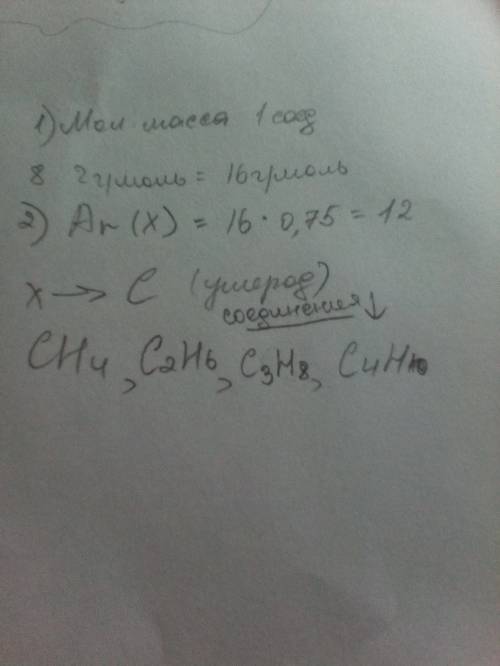 1) Мол масса 1 соед
8 2г/моль = 16г/моль
2) Ar (X) = 16 · 0,75 = 12
X → C (углерод)
соединения ↓
CH4, C2H6, C3H8, C4H10